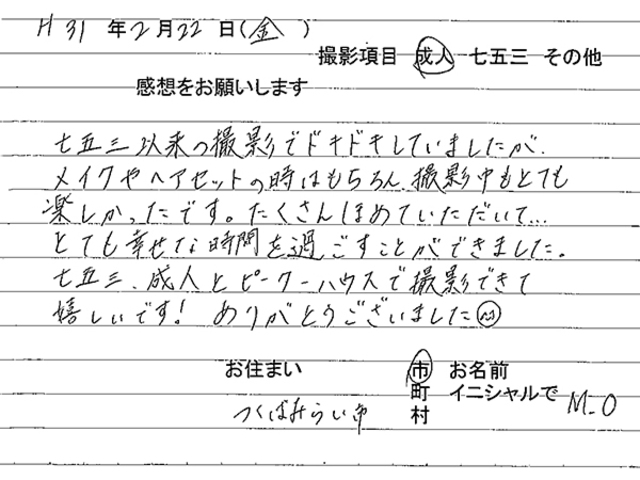 H 31 年 2 月 22 日(金)
撮影項目 成人 七五三 その他
感想をお願いします
七五三以来の撮影でドキドキしていましたが、
メイクやヘアセットの時はもちろん、撮影中もとても
楽しかったです。たくさんほめていただいて…
とても幸せな時間を過ごすことができました。
七五三、成人とピーターハウスで撮影できて
嬉しいです! ありがとうございました
お住まい 市 お名前
町 イニシャルで M.O
つくばみらい市 村